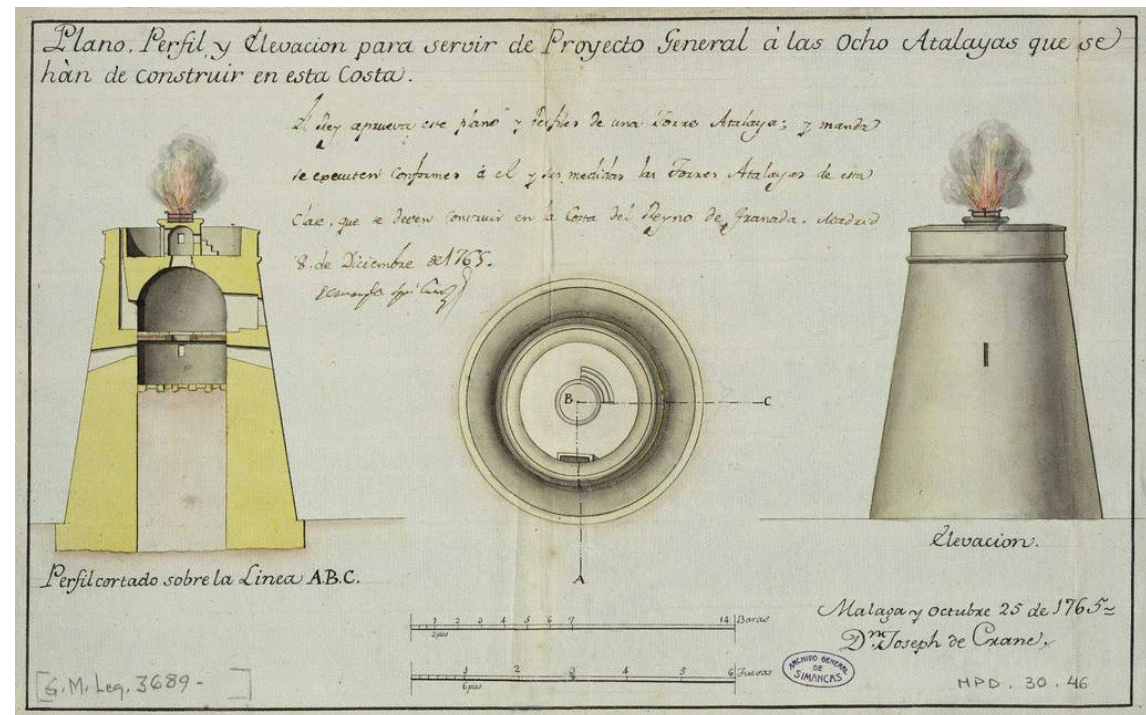 Plano, Perfil y Elevacion para servir de Proyecto General à las Ocho Atalayas que se
hàn de construir en esta Costa.
El Rey aprueva este plano y Perfiles de una Torre Atalaya; y manda
se executen conformes à el y sus medidas las Torres Atalayas de esta
clase, que se deven construir en la Costa del Reyno de Granada. Madrid
8. de Diciembre de 1765.
B
C
A
Perfil cortado sobre la Linea A.B.C.
Elevacion.
Malaga y Octubre 25 de 1765=
Dn. Joseph de Crane.
1 2 3 4 5 6 7 14 Baras
3 pies
1 2 3 4 5 6 Tuesas
6 pies
ARCHIVO GENERAL
DE
SIMANCAS
[G.M. Leg. 3689- ]
MPD. 30. 46